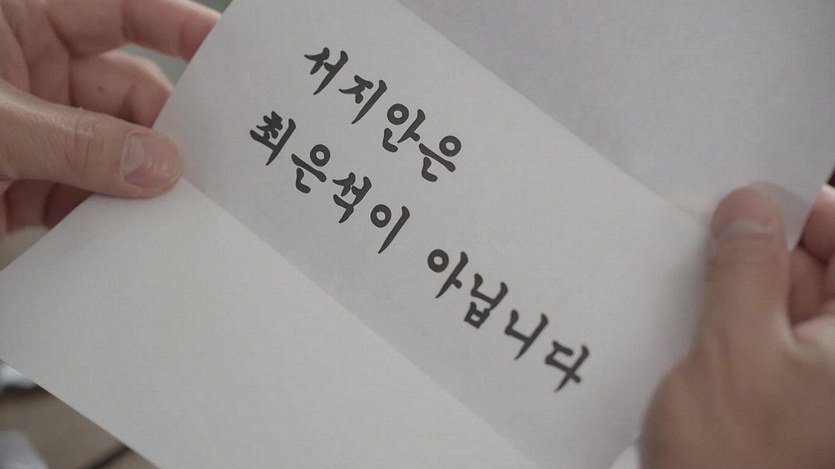 서지안은
최은석이 아닙니다